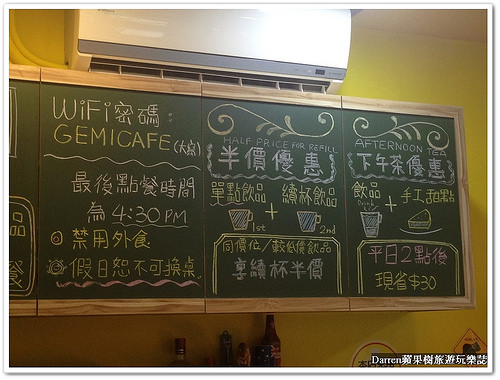 WiFi密碼:
GEMICAFE(大寫)
最後點餐時間
為 4:30 PM
禁用外食
假日恕不可換桌
HALF PRICE FOR REFILL
半價優惠
單點飲品 + 續杯飲品
1st 2nd
同價位/較低價飲品
享續杯半價
AFTERNOON TEA
下午茶優惠
飲品 + 手工甜點
Drink
平日2點後
現省$30
餐
Darren蘋果樹旅遊玩樂誌